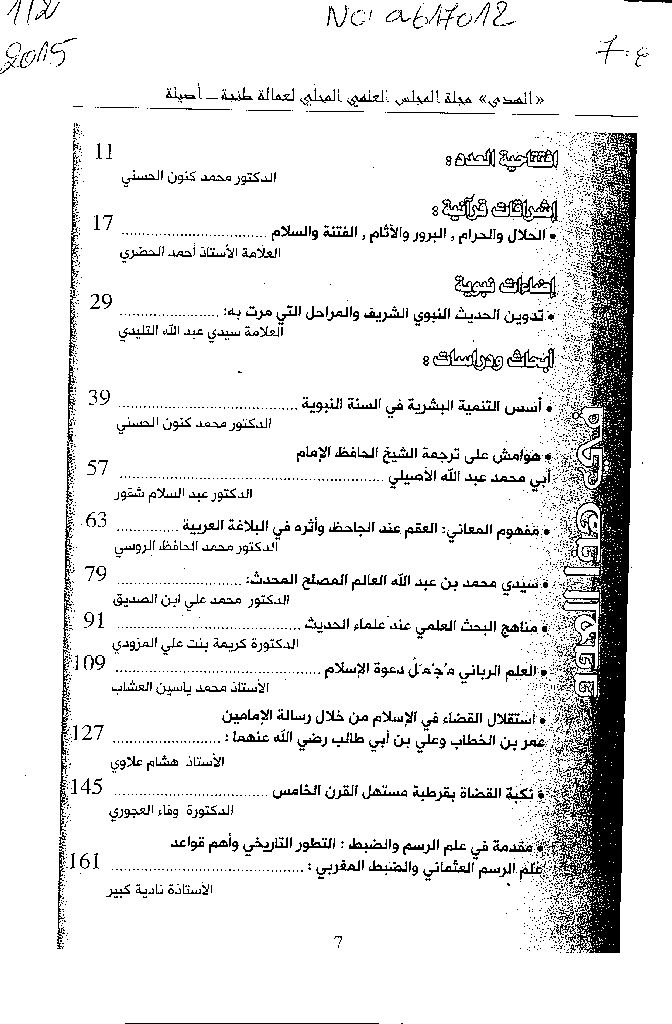 1/2
2015
NO: a617012
«الهدى» مجلة المجلس العلمي المحلي لعمالة طنجة - أصيلة
افتتاحية العدد : 11
الدكتور محمد كنون الحسني
إشراقات قرآنية :
• الحلال والحرام , البرور والآثام , الفتنة والسلام .............................. 17
العلامة الأستاذ أحمد الحضري
إضاءات نبوية
• تدوين الحديث النبوي الشريف والمراحل التي مرت به: .................... 29
العلامة سيدي عبد الله التليدي
أبحاث ودراسات :
• أسس التنمية البشرية في السنة النبوية .................................... 39
الدكتور محمد كنون الحسني
• هوامش على ترجمة الشيخ الحافظ الإمام
أبي محمد عبد الله الأصيلي ..................................................... 57
الدكتور عبد السلام شقور
• مفهوم المعاني: العقم عند الجاحظ وأثره في البلاغة العربية ............ 63
الدكتور محمد الحافظ الروسي
• سيدي محمد بن عبد الله العالم المصلح المحدث: ......................... 79
الدكتور محمد علي ابن الصديق
• مناهج البحث العلمي عند علماء الحديث .................................... 91
الدكتورة كريمة بنت علي المزودي
• العلم الرباني مجمل دعوة الإسلام ......................................... 109
الأستاذ محمد ياسين العشاب
• استقلال القضاء في الإسلام من خلال رسالة الإمامين
عمر بن الخطاب وعلي بن أبي طالب رضي الله عنهما : ...................... 127
الأستاذ هشام علاوي
• نكبة القضاة بقرطبة مستهل القرن الخامس ................................ 145
الدكتورة وفاء العجوري
• مقدمة في علم الرسم والضبط : التطور التاريخي وأهم قواعد
علم الرسم العثماني والضبط المغربي : ....................................... 161
الأستاذة نادية كبير
في هذا العدد
7